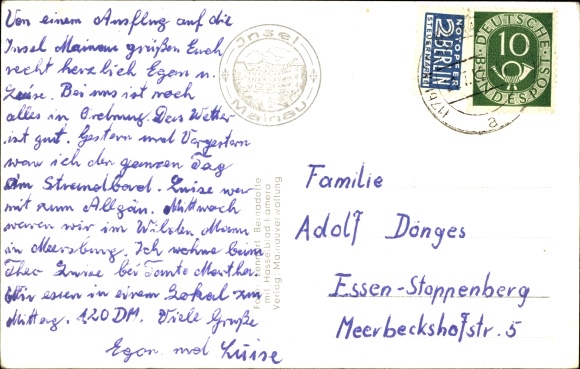 Von einem Ausflug auf die
Insel Mainau grüßen Euch
recht herzlich Egon u.
Luise. Bei uns ist noch
alles in Ordnung. Das Wetter
ist gut. Gestern und Vorgestern
war ich den ganzen Tag
am Strandbad. Luise war
mit zum Allgäu. Mittwoch
waren wir im Wilden Mann
in Meersburg. Ich wohne beim
Theo Luise bei Tante Martha.
Wir essen in einem Lokal zum
Mittag. 1,20 DM. Viele Grüße
Egon und Luise
Insel
Mainau
Lennart Bernadotte
mit Hasselblad Camera
Verlag: Mainauverwaltung
NOTOPFER
2 BERLIN
STEUERMARKE
DEUTSCHE
10
BUNDESPOST
(17b)
a
Familie
Adolf Dönges
Essen-Stoppenberg
Meerbeckshofstr. 5